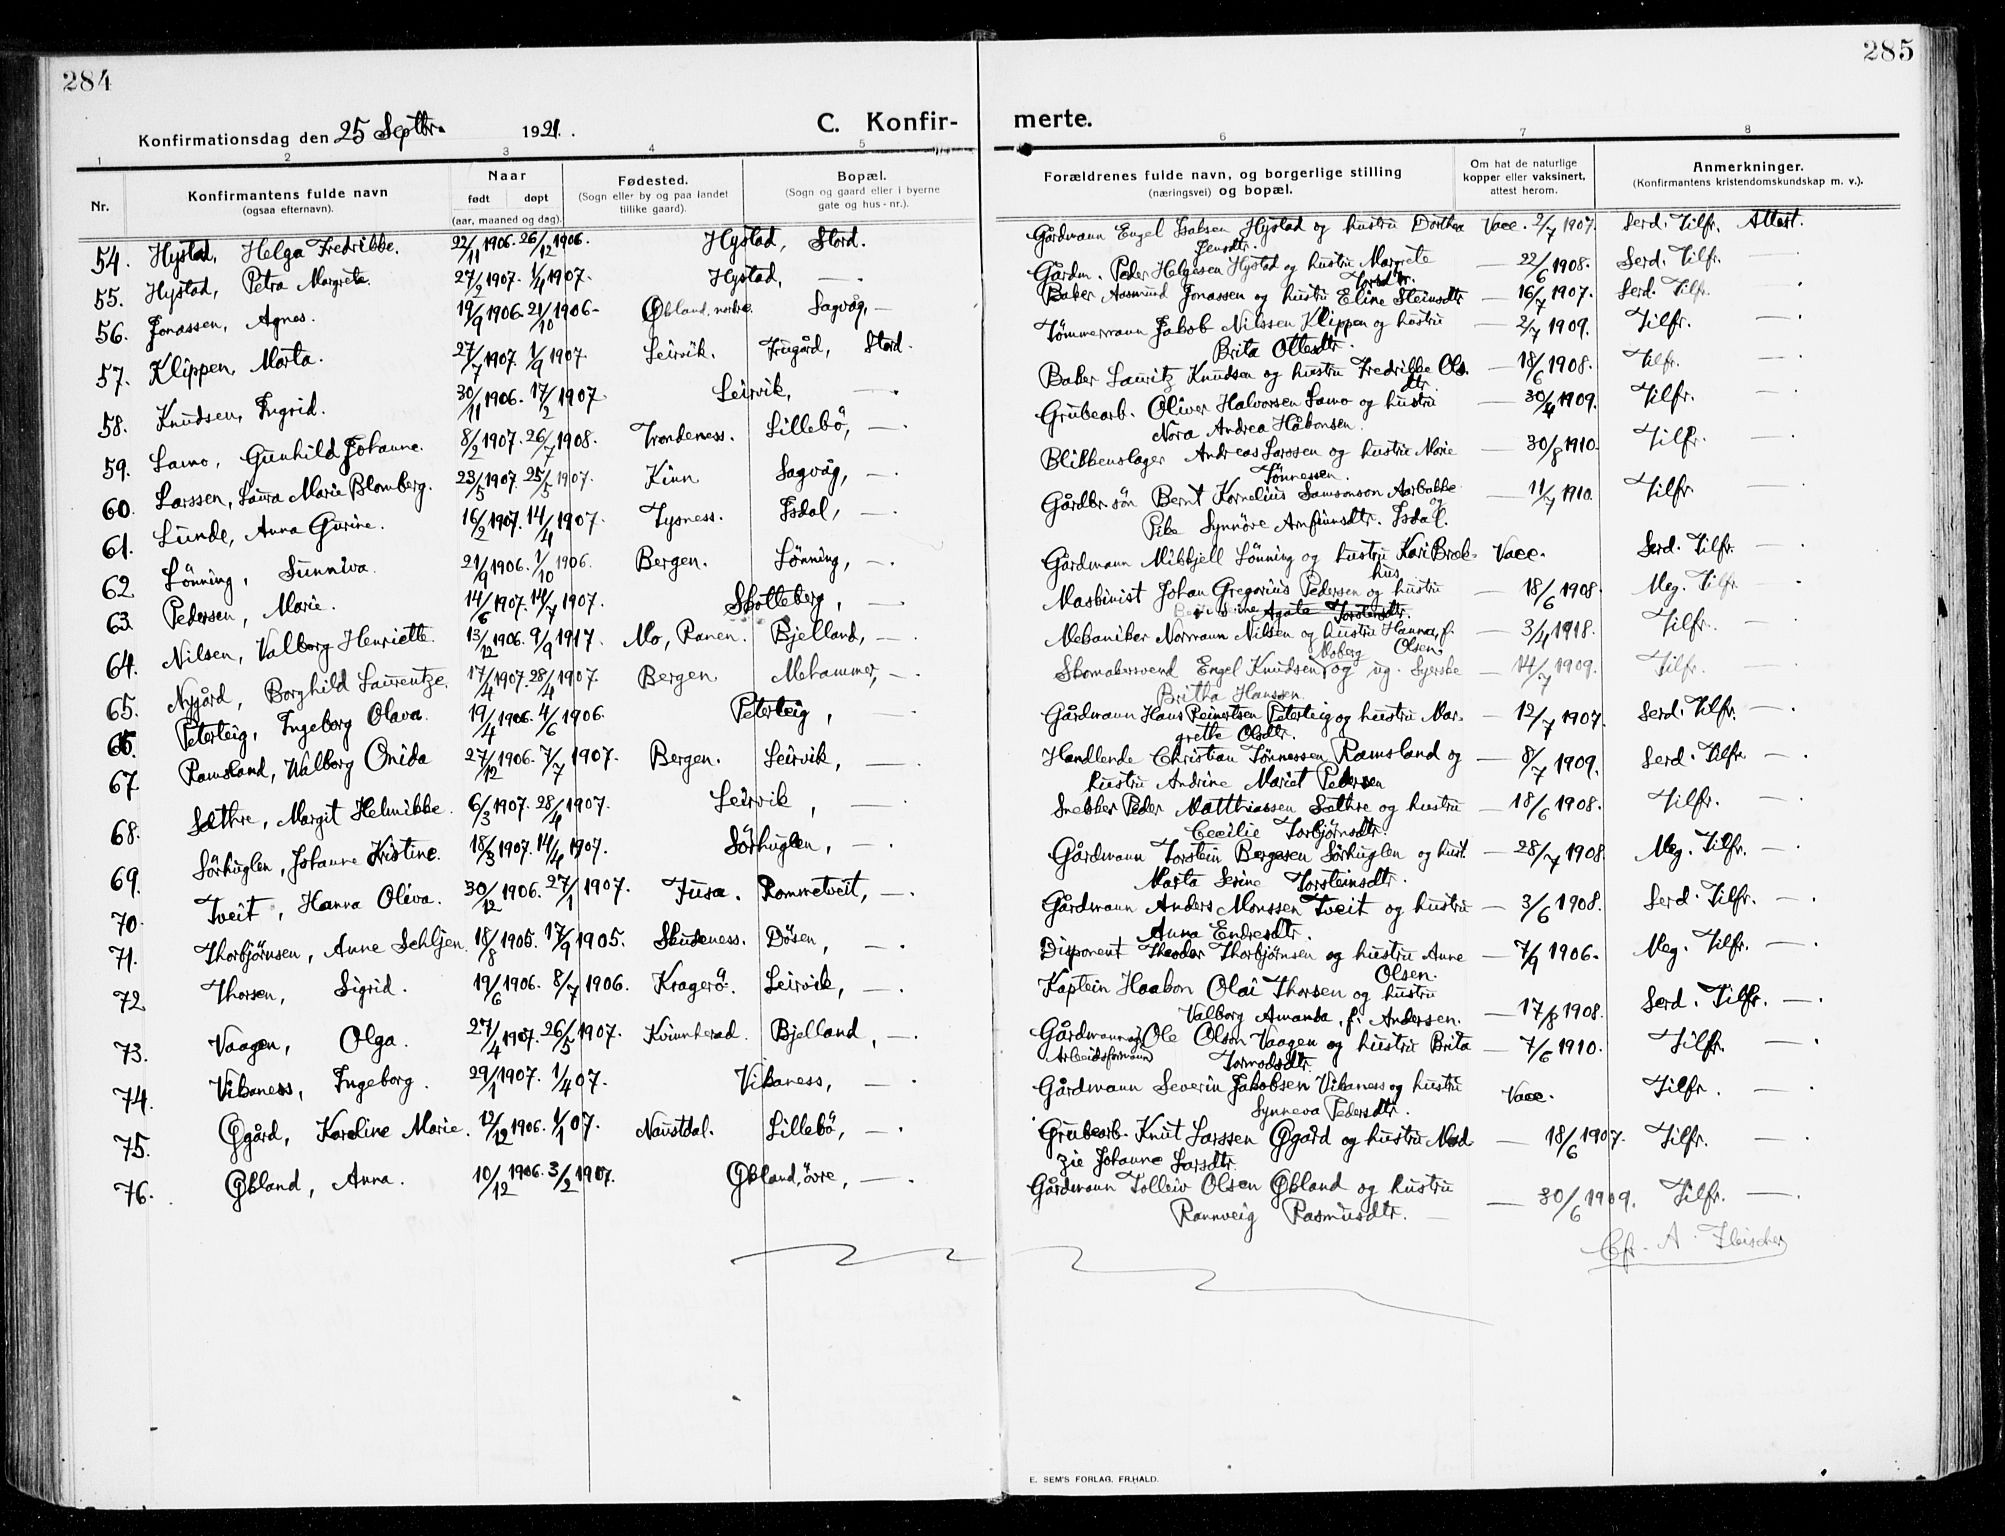 284
285
Konfirmationsdag den 25 Septbr. 1921.
C. Konfir-
merte.
1 2 3 4 5 6 7 8
Nr.
Konfirmantens fulde navn
(ogsaa efternavn).
Naar
født døpt
(aar, maaned og dag).
Fødested.
(Sogn eller by og paa landet
tillike gaard).
Bopæl.
(Sogn og gaard eller i byerne
gate og hus-nr.).
Forældrenes fulde navn, og borgerlige stilling
(næringsvei) og bopæl.
Om hat de naturlige
kopper eller vaksinert,
attest herom.
Anmerkninger.
(Konfirmantens kristendomskundskap m. v.).
54. Hystad, Helga Fredrikke. 22/11 1906. 26/12 1906. Hystad, Stord. Gårdmann Engel Isaksen Hystad og hustru Dorthea Vacc. 2/7 1907. Serd. Tilfr. Attest.
Jensdtr.
55. Hystad, Petra Margreta. 27/2 1907. 1/4 1907. Hystad, — Gårdm. Peder Helgesen Hystad og hustru Margrete — 22/6 1908. Serd. Tilfr. —
Torsdtr.
56. Jonassen, Agnes. 19/9 1906. 21/10 1906. Økland, nordre. Sagvåg, — Baker Aasmund Jonassen og hustru Eline Steinsdtr — 16/7 1907. Serd. Tilfr. —
57. Klippen, Marta. 27/7 1907. 1/9 1907. Leirvik. Frugård, Stord. Tømmermann Jakob Nilssen Klippen og hustru — 2/7 1909. Tilfr. —
Brita Ottesdtr.
58. Knudsen, Ingrid. 30/11 1906. 17/2 1907. Leirvik, — Baker Lauritz Knudsen og hustru Fredrikke Ols. — 18/6 1908. Tilfr.
dtr.
59. Lamo, Gunhild Johanne. 8/2 1907. 26/7 1908. Trondeness. Lillebö, — Grubearb. Oliver Halvorsen Lamo og hustru — 30/4 1909. Tilfr. —
Nora Andrea Håkonsen.
60. Larssen, Laura Marie Blomberg. 23/5 1907. 25/5 1907. Kinn Sagvåg, — Blikkenslager Andreas Larssen og hustru Marie — 30/8 1910. Tilfr. —
Tönnessen.
61. Lunde, Anna Gurine. 16/2 1907. 14/4 1907. Tysness. Isdal, — Gårdbr. sön Bernt Kornelius Samsonson Aarbakke — 11/7 1910. Tilfr. —
og
Pike Synnöve Arnfinnsdtr. Isdal.
62. Lönning, Sunniva. 21/9 1906. 1/10 1906. Bergen. Lönning, — Gårdmann Mikkjell Lönning og hustru Kari Brek- Vacc. Serd. Tilfr. —
hus
63. Pedersen, Marie. 14/6 1907. 14/7 1907. Skotteberg, — Maskinist Johan Gregorius Pedersen og hustru — 18/6 1908. Meg. Tilfr. —
Agate Torsteinsdtr.
64. Nilsen, Valborg Henriette. 13/12 1906. 9/9 1917. Mo, Ranen. Bjelland, — Mekaniker Normann Nilsen og hustru Hanna, f. — 3/4 1918. Tilfr. —
Moberg Olsen.
65. Nygård, Borghild Laurentze. 17/4 1907. 28/4 1907. Bergen Mehammer, — Skomakersvend Engel Knudsen og ug. Syerske — 14/7 1909. Tilfr. —
Britha Hanssen.
66. Peterteig, Ingeborg Olava. 19/4 1906. 4/6 1906. Peterteig, — Gårdmann Hans Reinertsen Peterteig og hustru Mar- — 12/7 1907. Serd. Tilfr. —
grethe Olsdtr.
67. Ramsland, Walborg Onida 27/12 1906. 7/7 1907. Bergen. Leirvik, — Handlende Christian Tönnessen Ramsland og — 8/7 1909. Serd. Tilfr. —
hustru Andrine Mariet Petersen
68. Sæthre, Margit Helmikke. 6/3 1907. 28/4 1907. Leirvik, — Snekker Peder Matthiassen Sæthre og hustru — 18/6 1908. Tilfr. —
Cecilie Torbjörnsdtr.
69. Sörhuglen, Johanne Kristine. 18/3 1907. 14/4 1907. Sörhuglen, — Gårdmann Torstein Bergesen Sörhuglen og hust. — 28/7 1908. Meg. Tilfr. —
Marta Serine Torsteinsdtr.
70. Tveit, Hanna Oliva. 30/12 1906. 27/1 1907. Fusa. Rommetveit, — Gårdmann Anders Monssen Tveit og hustru — 3/6 1908. Serd. Tilfr. —
Anna Endresdtr.
71. Thorbjörnsen, Anne Sehljen. 18/8 1905. 17/9 1905. Skudeness. Dösen, — Disponent Theodor Thorbjörnsen og hustru Anne — 7/9 1906. Meg. Tilfr. —
Olsen.
72. Thorsen, Sigrid. 19/6 1906. 8/7 1906. Kragerö. Leirvik, — Kaptein Haakon Olai Thorsen og hustru — 17/8 1908. Serd. Tilfr. —
Valborg Amanda, f. Andersen.
73. Vaagen, Olga. 27/4 1907. 26/5 1907. Kvinnherad. Bjelland, — Gårdmann og Ole Olson Vaagen og hustru Brita — 7/6 1910. Tilfr. —
Arbeidsformann Tormodsdtr.
74. Vikaness, Ingeborg. 29/1 1907. 1/4 07. Vikaness, — Gårdmann Severin Jakobsen Vikaness og hustru Vacc. Tilfr. —
Synneva Pedersdtr.
75. Øgård, Karoline Marie. 12/12 1906. 1/1 07. Naustdal. Lillebö, — Grubearb. Knut Larssen Øgård og hustru Mad- — 18/6 1907. Tilfr. —
zie Johanne Larsdtr.
76. Økland, Anna. 10/12 1906. 3/2 1907. Økland, övre, — Gårdmann Tolleiv Olsen Økland og hustru — 30/6 1909. Tilfr. —
Rannveig Rasmusdtr. —
Cfr. A. Fleischer
E. SEM'S FORLAG. FR.HALD.